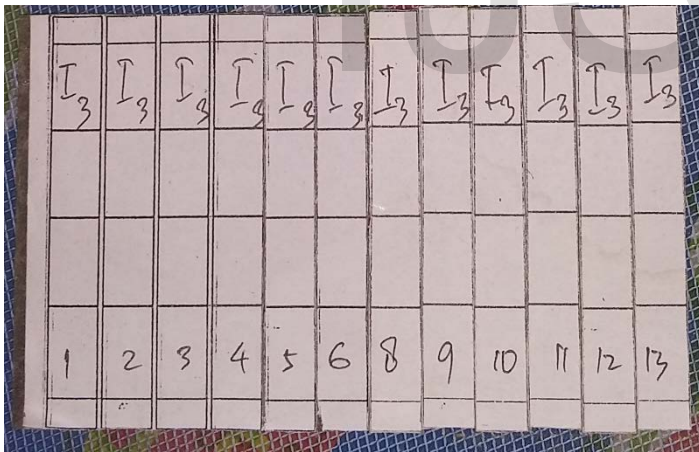 I3 I3 I3 I3 I3 I3 I3 I3 I3 I3 I3 I3
1 2 3 4 5 6 8 9 10 11 12 13